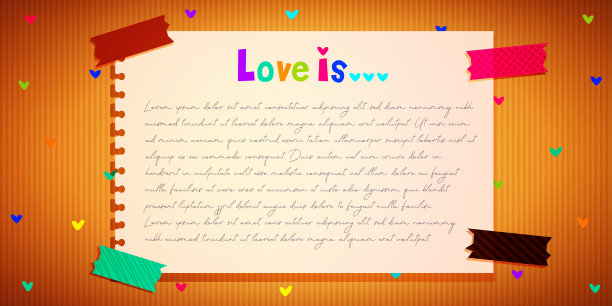 Love is...
Lorem ipsum dolor sit amet consectetuer adipiscing elit sed diam nonummy nibh
euismod tincidunt ut laoreet dolore magna aliquam erat volutpat. Ut wisi enim
ad minim veniam quis nostrud exerci tation ullamcorper suscipit lobortis nisl ut
aliquip ex ea commodo consequat. Duis autem vel eum iriure dolor in
hendrerit in vulputate velit esse molestie consequat vel illum dolore eu feugiat
nulla facilisis at vero eros et accumsan et iusto odio dignissim qui blandit
praesent luptatum zzril delenit augue duis dolore te feugait nulla facilisi.
Lorem ipsum dolor sit amet cons ectetuer adipiscing elit sed diam nonummy
nibh euismod tincidunt ut laoreet dolore magna aliquam erat volutpat.